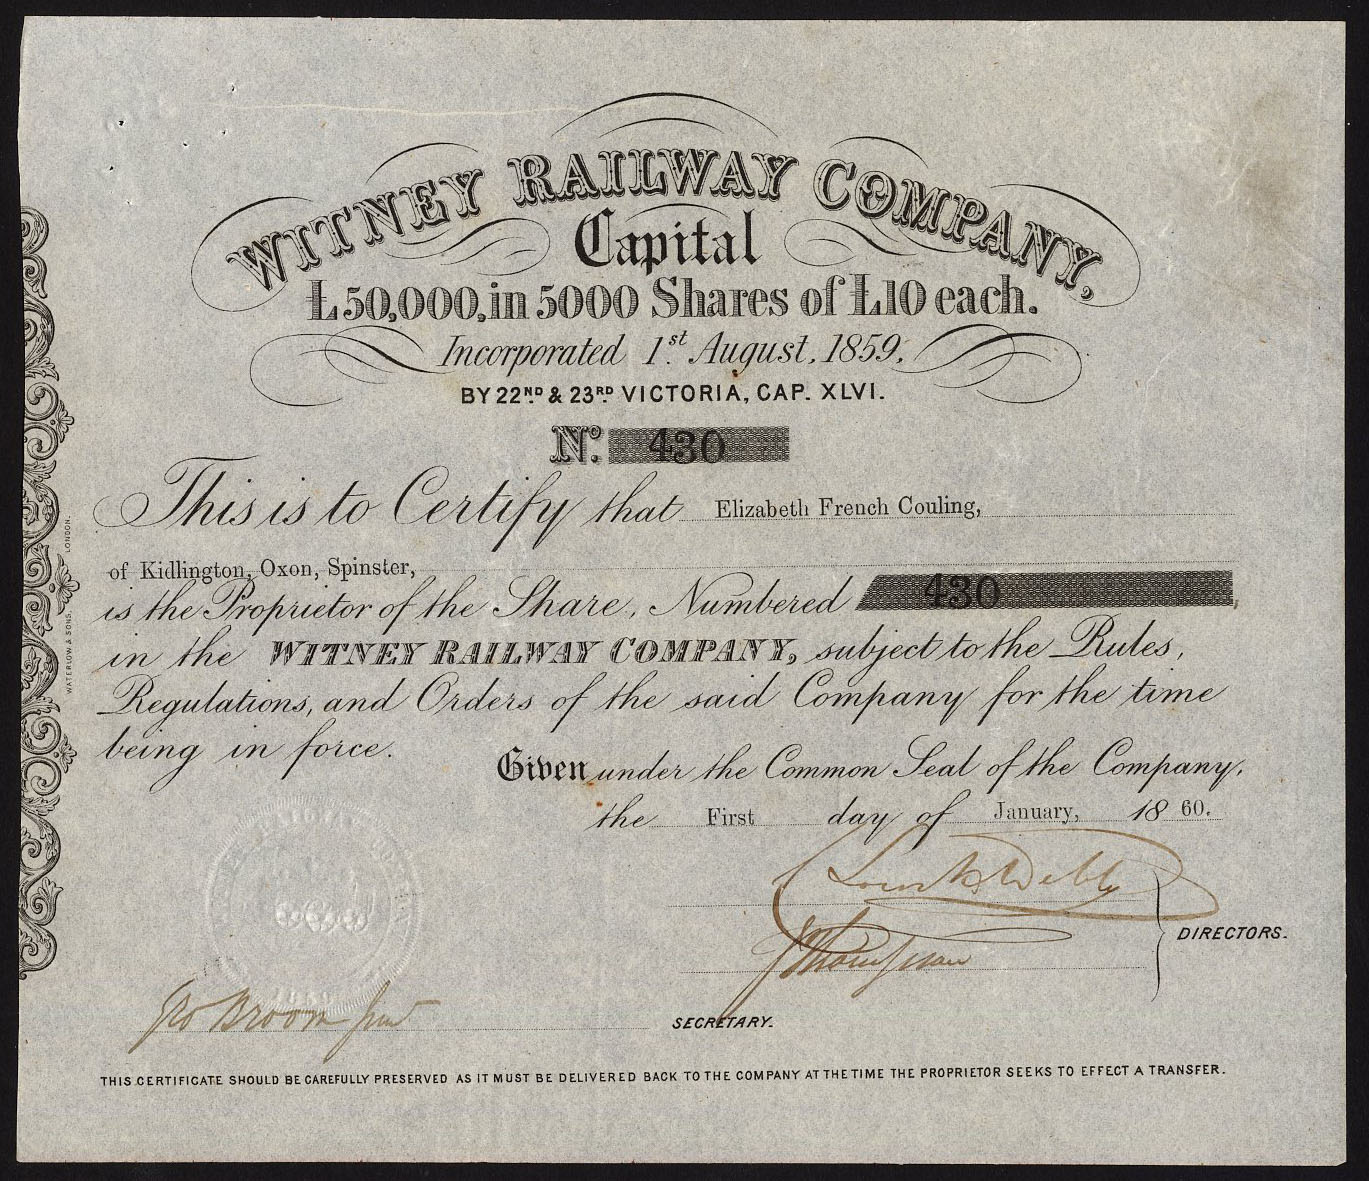 WITNEY RAILWAY COMPANY,
Capital
£50,000, in 5000 Shares of £10 each.
Incorporated 1st August, 1859,
BY 22ND & 23RD VICTORIA, CAP. XLVI.
No. 430
This is to Certify that Elizabeth French Couling,
of Kidlington, Oxon, Spinster,
is the Proprietor of the Share, Numbered 430,
in the WITNEY RAILWAY COMPANY, subject to the Rules,
Regulations, and Orders of the said Company for the time
being in force.
Given under the Common Seal of the Company,
the First day of January, 1860.
DIRECTORS.
J Thompson
Geo Broom
SECRETARY.
THIS CERTIFICATE SHOULD BE CAREFULLY PRESERVED AS IT MUST BE DELIVERED BACK TO THE COMPANY AT THE TIME THE PROPRIETOR SEEKS TO EFFECT A TRANSFER.
WATERLOW & SONS, LONDON.